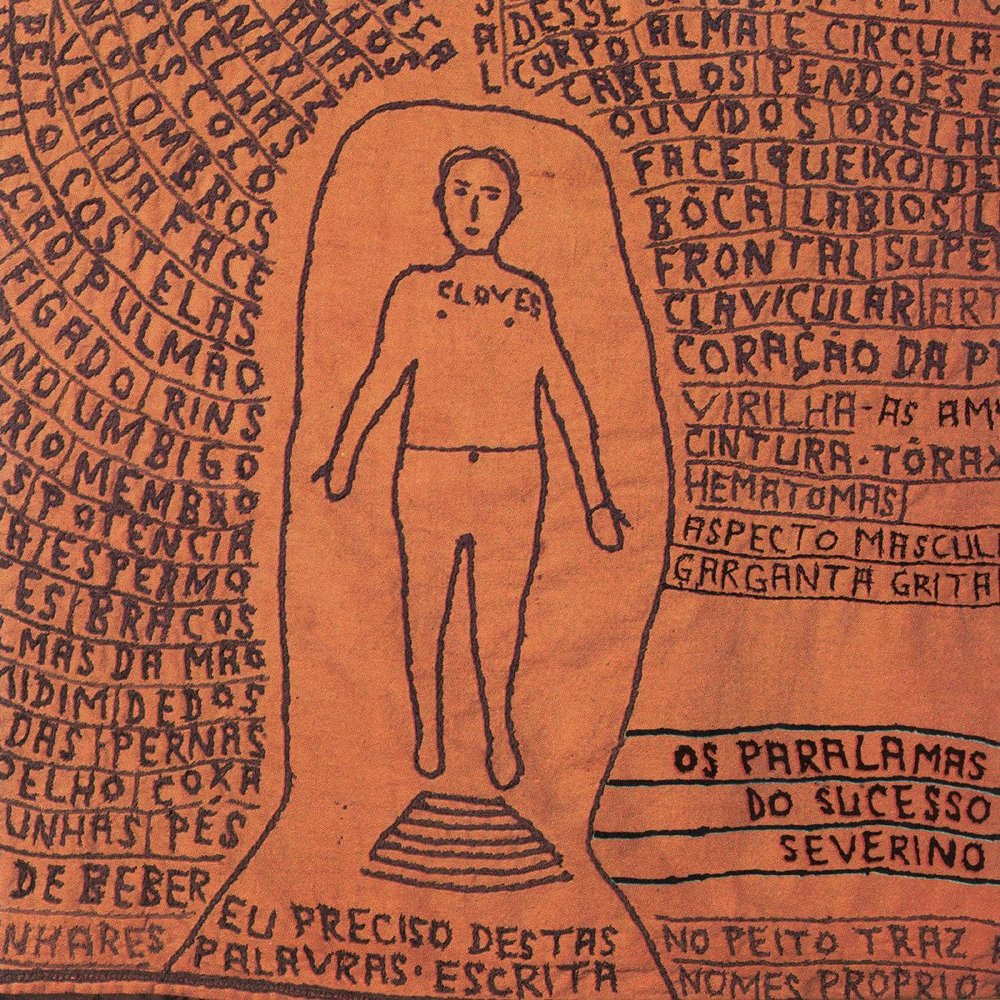 NARIZ
CELHAS
PESCOCO
OMBROS
VEIRA DA FACE
PEITO COSTELAS
ACRO PULMÃO
FIGADO RINS
NO UMBIGO
RIO MEMBRO
S POTENCIA
ESPERMO
ES BRACOS
LMAS DA MÃO
MIDIM DEDOS
DAS PERNAS
ELHO COXA
UNHAS PÉS
DE BEBER
NHARES
CLOVES
EU PRECISO DESTAS
PALAVRAS. ESCRITA
SAL
DESSE
CORPO ALMA E CIRCULA
CABELOS PENDÕES E
OUVIDOS ORELH
FACE QUEIXO DE
BÔCA LABIOS L
FRONTAL SUPE
CLAVIÇULAR ART
CORAÇÃO DA P
VIRILHA-AS AM
CINTURA-TÓRAX
HEMATOMAS
ASPECTO MASCUL
GARGANTA GRITA
OS PARALAMAS
DO SUCESSO
SEVERINO
NO PEITO TRAZ
NOMES PROPRIO